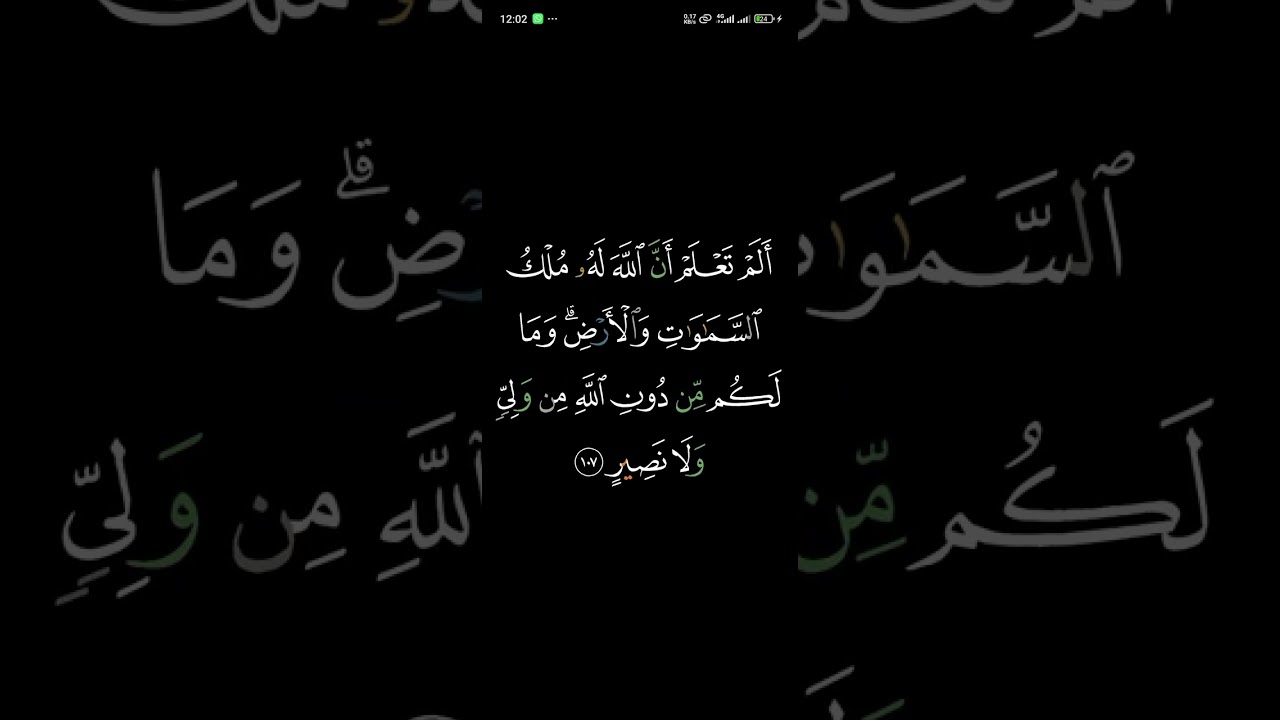 12:02 ... 0.17 KB/s 4G 24
أَلَمْ تَعْلَمْ أَنَّ ٱللَّهَ لَهُۥ مُلْكُ
ٱلسَّمَـٰوَٰتِ وَٱلْأَرْضِ ۗ وَمَا
لَكُم مِّن دُونِ ٱللَّهِ مِن وَلِىٍّۢ
وَلَا نَصِيرٍ ١٠٧